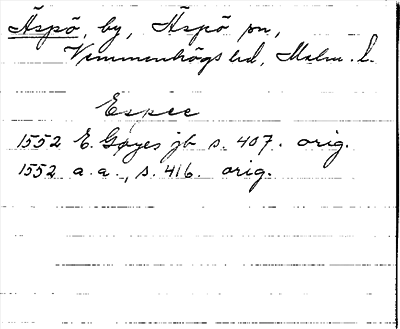 Äspö, by, Äspö sn,
Vemmenhögs hd, Malm. l.
Espee
1552 E. Gøyes jb s. 407. orig.
1552 a.a., s. 416. orig.